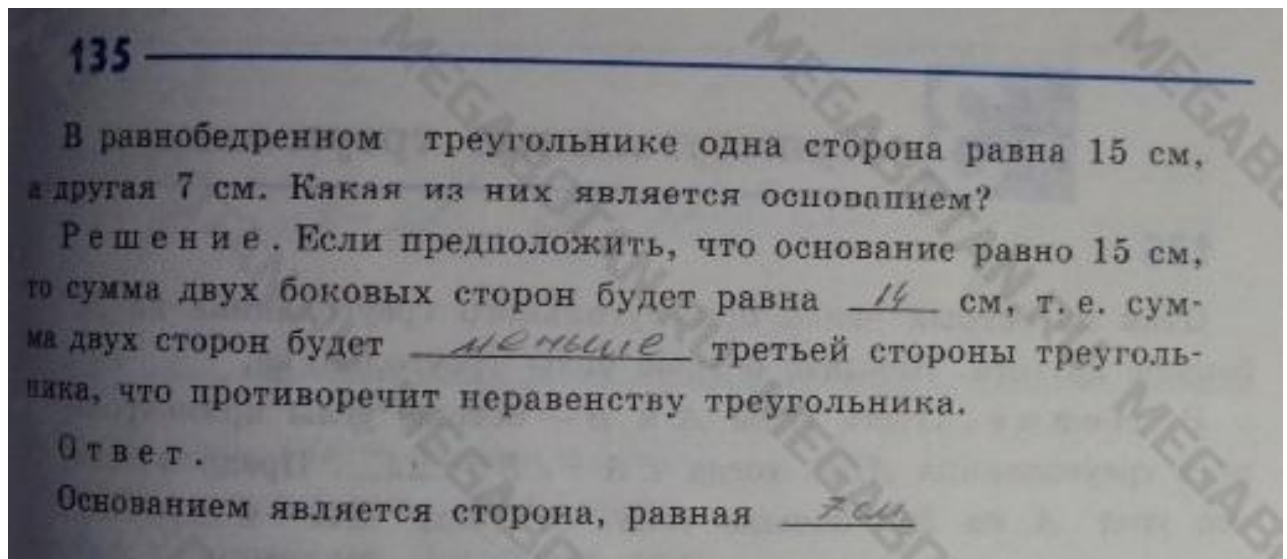 135
В равнобедренном треугольнике одна сторона равна 15 см,
а другая 7 см. Какая из них является основанием?
Решение. Если предположить, что основание равно 15 см,
то сумма двух боковых сторон будет равна 14 см, т. е. сум-
ма двух сторон будет меньше третьей стороны треуголь-
ника, что противоречит неравенству треугольника.
Ответ.
Основанием является сторона, равная 7 см